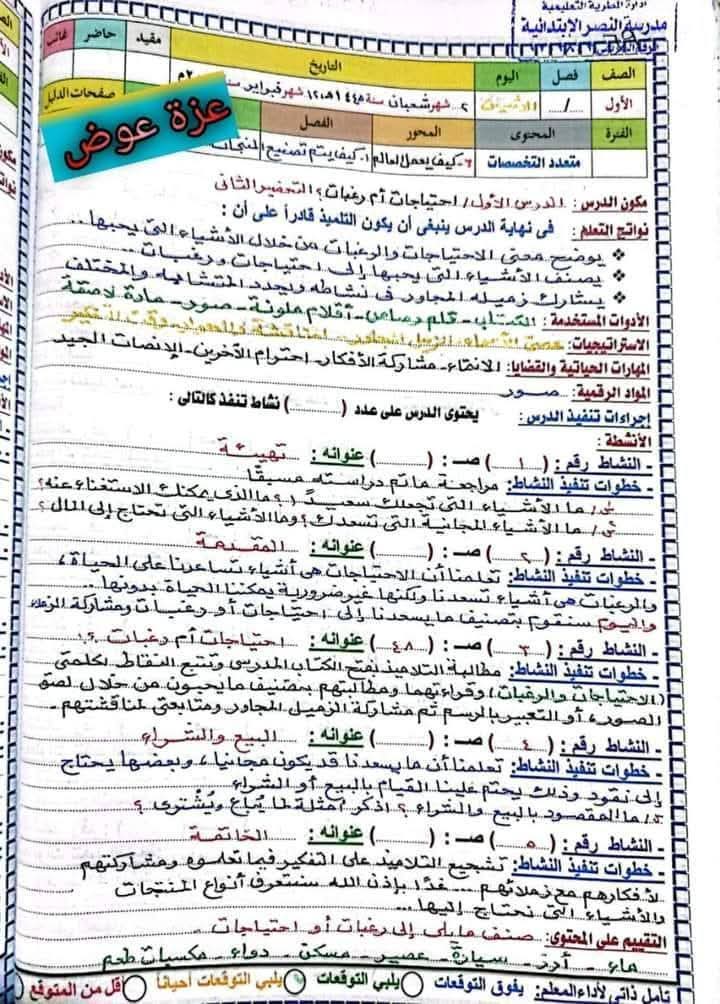 ادارة المطرية التعليمية
مدرسة النصر الابتدائية
الصف فصل اليوم التاريخ مقيد حاضر غائب
الأول /.... الأثنين شهر شعبان سنة ١٤٤٥هـ شهر فبراير سنة م
الفترة المحتوى المحور الفصل صفحات الدليل
متعدد التخصصات ٣- كيف يعمل العالم ١- كيف يتم تصنيع المنتجات
عزة عوض
مكون الدرس : الدرس الأول / احتياجات أم رغبات؟ التحضير الثانى
نواتج التعلم : فى نهاية الدرس ينبغى أن يكون التلميذ قادراً على أن :
❖ يوضح معنى الاحتياجات والرغبات من خلال الأشياء التى يحبها..
❖ يصنف الأشياء التى يحبها إلى احتياجات ورغبات..
❖ يشارك زميله المجاور فى نشاطه ويحدد المتشابه والمختلف
الأدوات المستخدمة : الكتاب - قلم رصاص - أقلام ملونة - صور - مادة لاصقة
الاستراتيجيات : عصى الأسماء - الزميل المجاور - المناقشة والحوار - وقت التفكير
المهارات الحياتية والقضايا : الانتماء - مشاركة الأفكار - احترام الآخرين - الإنصات الجيد
المواد الرقمية : صور
إجراءات تنفيذ الدرس : يحتوى الدرس على عدد (......) نشاط تنفذ كالتالى :
الأنشطة :
- النشاط رقم : ( ١ ) صـ : ( ) عنوانه : تهيئة
- خطوات تنفيذ النشاط: مراجعة ما تم دراسته مسبقًا
س/ ما الأشياء التى تجعلك سعيدًا ؟ ما الذى يمكنك الاستغناء عنه؟
س/ ما الأشياء المجانية التى تسعدك؟ وما الأشياء التى تحتاج إلى المال؟
- النشاط رقم : ( ٢ ) صـ : ( ) عنوانه : المقدمة
- خطوات تنفيذ النشاط: تعلمنا أن الاحتياجات هى أشياء تساعدنا على الحياة،
والرغبات هى أشياء تسعدنا ولكنها غير ضرورية يمكننا الحياة بدونها..
واليوم سنقوم بتصنيف ما يسعدنا إلى احتياجات أو رغبات ومشاركة الزملاء
- النشاط رقم : ( ٣ ) صـ : ( ٤٨ ) عنوانه : احتياجات أم رغبات
- خطوات تنفيذ النشاط: مطالبة التلاميذ بفتح الكتاب المدرسى وتتبع النقاط لكلمتى
(الاحتياجات والرغبات) وقراءتهما ومطالبتهم بتصنيف ما يحبون من خلال لصق
الصور، أو التعبير بالرسم ثم مشاركة الزميل المجاور ومتابعتى لمناقشتهم -
- النشاط رقم : ( ٤ ) صـ : ( ) عنوانه : البيع والشراء
- خطوات تنفيذ النشاط: تعلمنا أن ما يسعدنا قد يكون مجانيا، وبعضها يحتاج
إلى نقود وذلك يحتم علينا القيام بالبيع أو الشراء
س/ ما المقصود بالبيع والشراء ؟ اذكر أمثلة لما يُباع ويُشترى ؟
- النشاط رقم : ( ٥ ) صـ : ( ) عنوانه : الخاتمة
- خطوات تنفيذ النشاط: تشجيع التلاميذ على التفكير فيما تعلموه ومشاركتهم
لأفكارهم مع زملائهم ... غدًا بإذن الله سنتعرف أنواع المنتجات
والأشياء التى نحتاج إليها...
التقييم على المحتوى: صنف ما يلى إلى رغبات أو احتياجات
ماء - أرز - سيارة - عصير - مسكن - دواء - مكسبات طعم
تأمل ذاتى لأداء المعلم: يفوق التوقعات يلبي التوقعات يلبي التوقعات أحياناً أقل من المتوقع